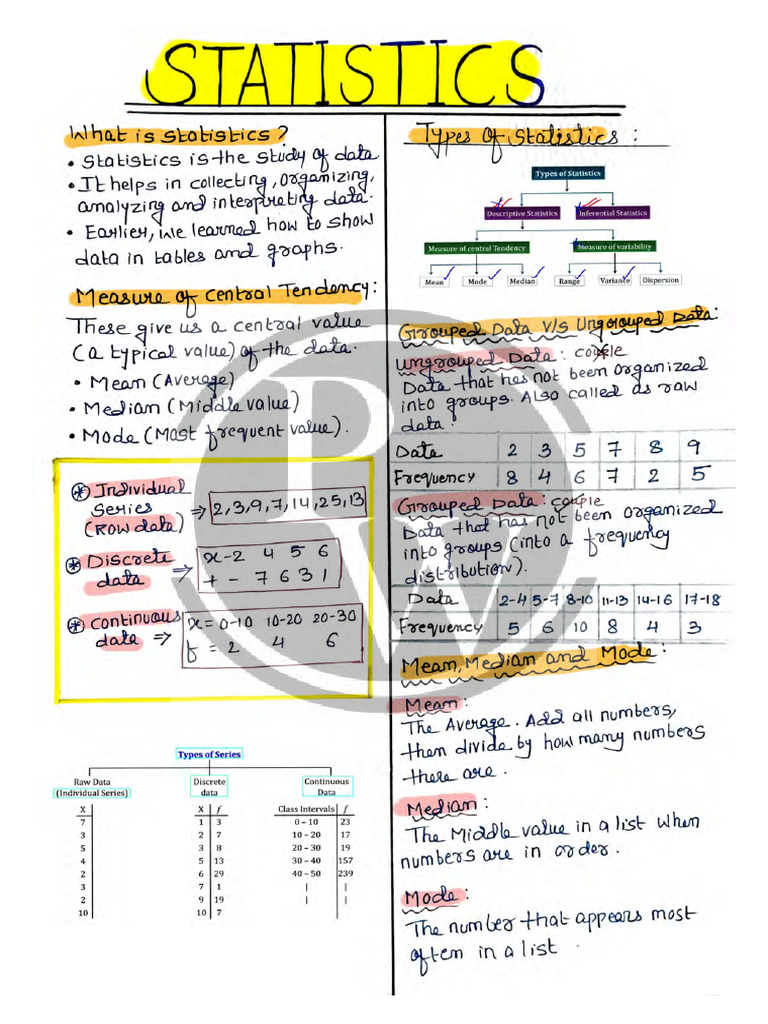 STATISTICS
What is statistics?
• Statistics is the study of data.
• It helps in collecting, organizing,
analyzing and interpreting data.
• Earlier, we learned how to show
data in tables and graphs.
Measure of Central Tendency:
These give us a central value
(a typical value) of the data.
• Mean (Average)
• Median (Middle value)
• Mode (Most frequent value).
* Individual
series
(ROW data) ⇒ 2,3,9,7,14,25,13
* Discrete
data ⇒
x-2 4 5 6
+ - 7 6 3 1
* continuous
data ⇒
x = 0-10 10-20 20-30
f = 2 4 6
Types of Series
Raw Data
(Individual Series)
X
7
3
5
4
2
3
2
10
Discrete
data
X f
1 3
2 7
3 8
5 13
6 29
7 1
9 19
10 7
Continuous
Data
Class Intervals f
0 – 10 23
10 – 20 17
20 – 30 19
30 – 40 157
40 – 50 239
| |
| |
Types of Statistics:
Types of Statistics
Descriptive Statistics Inferential Statistics
Measure of central Tendency Measure of variability
Mean Mode Median Range Variance Dispersion
Grouped Data v/s Ungrouped Data:
Ungrouped Data:
Data that has not been organized
into groups. Also called as raw
data.
Data 2 3 5 7 8 9
Frequency 8 4 6 7 2 5
Grouped Data:
Data that has not been organized
into groups (into a frequency
distribution).
Data 2-4 5-7 8-10 11-13 14-16 17-18
Frequency 5 6 10 8 4 3
Mean, Median and Mode:
Mean:
The Average. Add all numbers,
then divide by how many numbers
there are.
Median:
The Middle value in a list when
numbers are in order.
Mode:
The number that appears most
often in a list.
PW